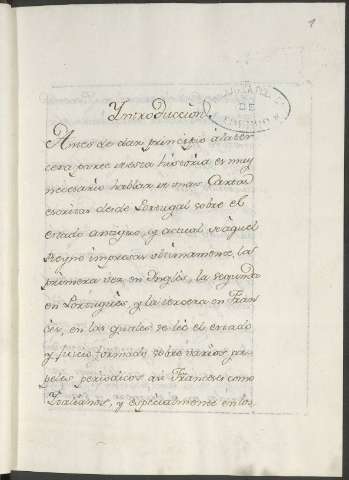 1
Yntroduccion.
Antes de dar principio á la ter
cera parte de esta historia es muy
necesario hablar de unas Cartas
escritas desde Portugal sobre el
estado antiguo, y actual de aquel
Reyno impresas ultimamente, la
primera vez en Ynglés, la segunda
en Portugués, y la tercera en Fran
cés, en las quales se leé el extracto
y juicio formado sobre varios pa-
peles periodicos asi Franceses como
Ytalianos, y especialmente en los